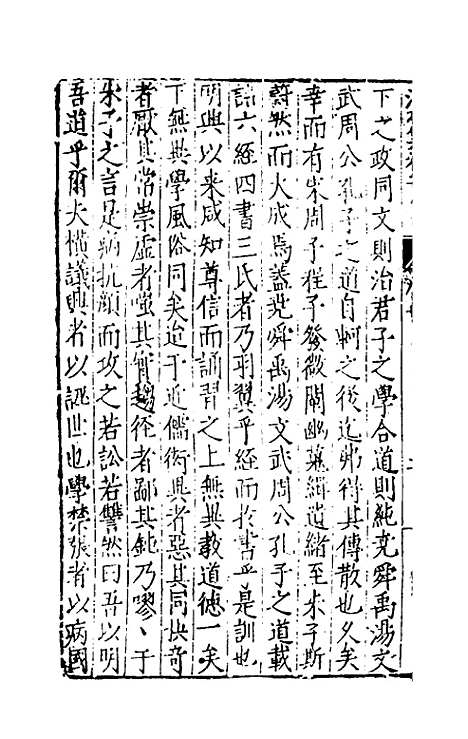 下之政同文則治君子之學合道則純堯舜禹湯文
武周公孔子之道自軻之後迄弗得其傳散也久矣
幸而有宋周子程子發微闡幽葺緝遺緒至朱子斯
蔚然而大成焉蓋堯舜禹湯文武周公孔子之道載
諸六經四書三氏者乃羽翼乎經而於書乎是訓也
明興以来咸知尊信而誦習之上無異教道德一矣
下無異學風俗同矣迨于近儒術異者惡其同快奇
者厭其常崇虛者嗤其實趨徑者鄙其鈍乃嘐嘐于
朱子之言是病抗顏而攻之若訟若讐然曰吾以明
吾道乎爾夫橫議興者以誣世也學禁張者以病國